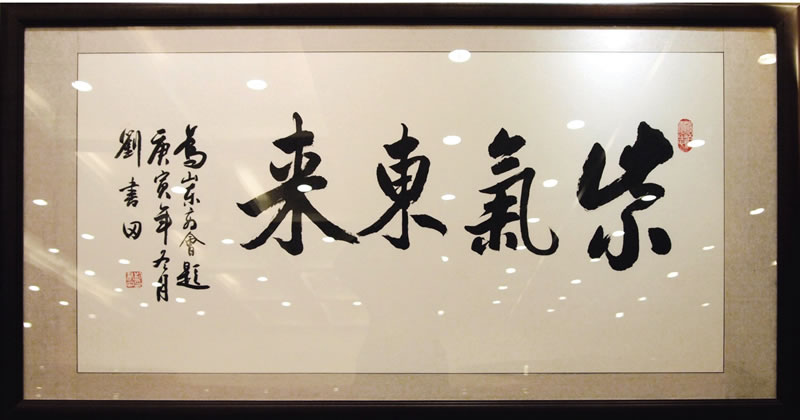 紫氣東来
為山东商會題
庚寅年冬月
劉書田